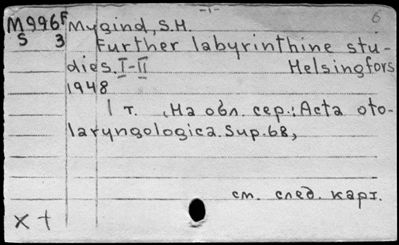 -1-
6
M996F Mygind, S.H.
S 3 Further labyrinthine stu-
dies. I-II Helsingfors
1948
1 т. , На обл. сер.: Acta oto-
laryngologica. Sup. 68,
см. след. карт.
X +